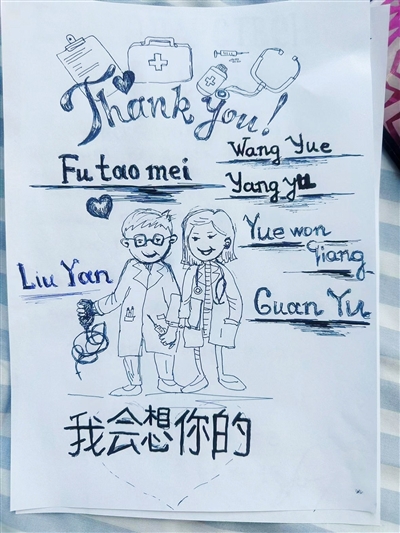 Thank you!
Wang Yue
Fu tao mei
Yang yu
Yue won
Qiang
Liu Yan
Guan Yu
我会想你的